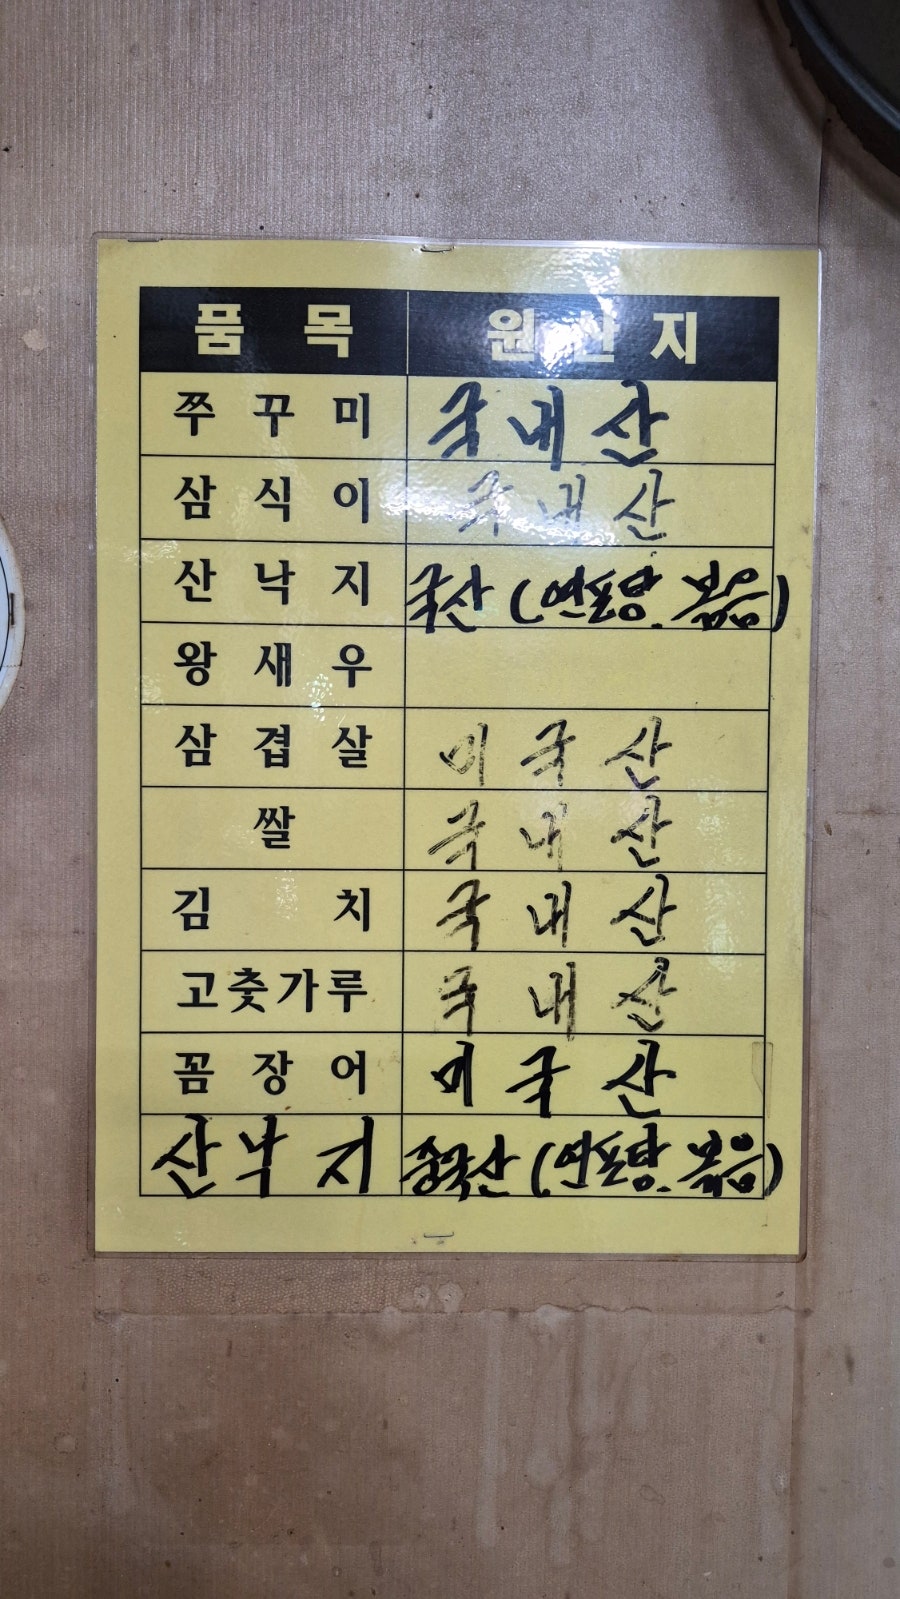 품목 원산지
쭈꾸미 국내산
삼식이 국내산
산낙지 국산 (연포탕. 볶음)
왕새우
삼겹살 미국산
쌀 국내산
김치 국내산
고춧가루 국내산
꼼장어 미국산
산낙지 중국산 (연포탕. 볶음)